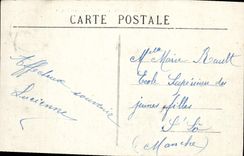 CARTE POSTALE
Affectueux souvenir
Lucienne
Mlle Marie Rault
Ecole Supérieure des
jeunes filles
St Lô
(Manche)